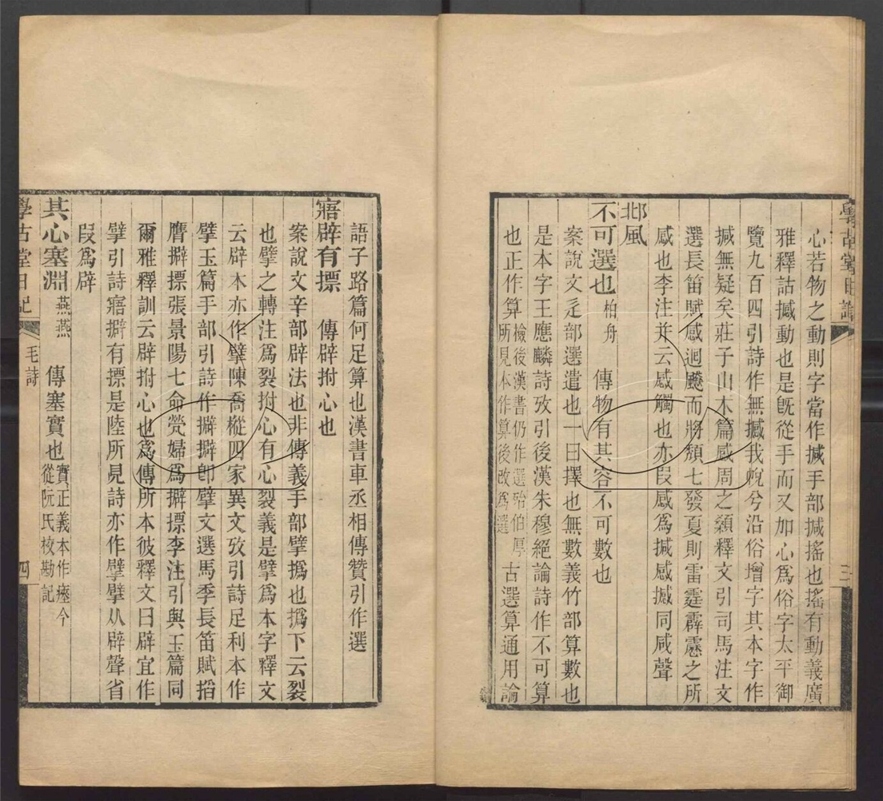 心若物之動則字當作搣手部搣搖也搖有動義廣
雅釋詁撼動也是旣從手而又加心爲俗字太平御
覽九百四引詩作無撼我帨兮沿俗增字其本字作
搣無疑矣莊子山木篇感周之顙釋文引司馬注文
選長笛賦感迴飇而將頹七發夏則雷霆霹靂之所
感也李注并云感觸也亦段感爲搣感撼同咸聲
邶風
不可選也 柏舟 傳物有其容不可數也
案說文辵部選遣也一曰擇也無數義竹部算數也
是本字王應麟詩攷引後漢朱穆絕論詩作不可算
也正作算 檢後漢書仍作選殆伯厚所見本作算後改爲選 古選算通用論
三
語子路篇何足算也漢書車丞相傳贊引作選
寤辟有摽 傳辟拊心也
案說文辛部辟法也非傳義手部擘撝也撝下云裂
也擘之轉注爲裂拊心有心裂義是擘爲本字釋文
云辟本亦作擘陳喬樅四家異文攷引詩足利本作
擘玉篇手部引詩作擗擗卽擘文選馬季長笛賦搯
膺擗摽張景陽七命煢婦爲擗摽李注引與玉篇同
爾雅釋訓云辟拊心也爲傳所本彼釋文曰辟宜作
擘引詩寤擗有摽是陸所見詩亦作擘擘从辟聲省
段爲辟
其心塞淵 燕燕 傳塞實也 實正義本作瘞今從阮氏校勘記
學古堂日記 毛詩 四